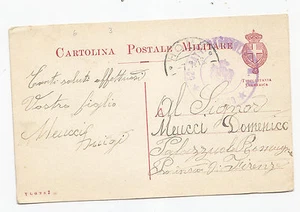 CARTOLINA POSTALE MILITARE
Tanti saluti affettuosi
Vostro figlio
Meucci
Luigi
Al Signor
Meucci Domenico
Palazzuolo Romagna
Firenze